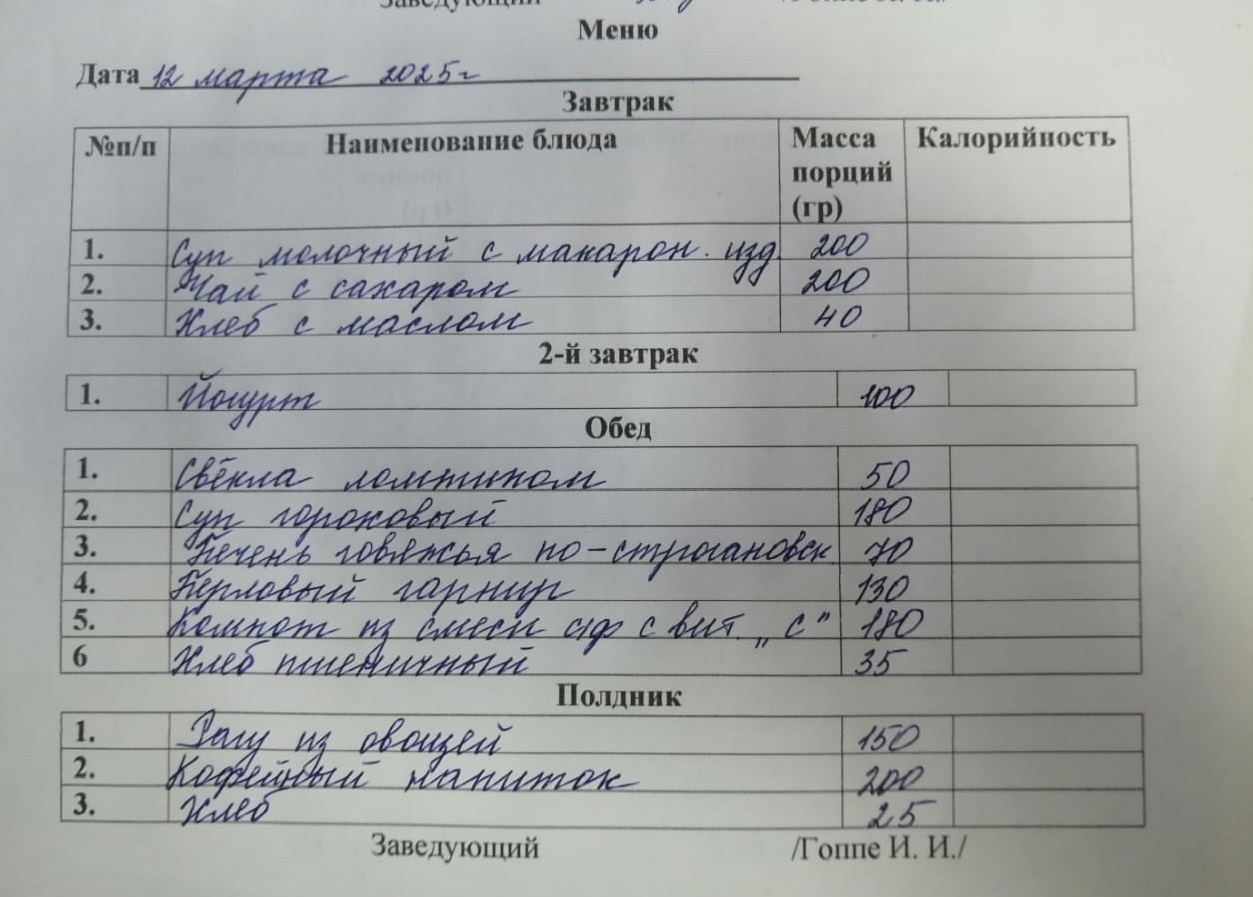 Заведующий /Гоппе И. И./
Меню
Дата 12 марта 2025г
Завтрак
№п/п Наименование блюда Масса порций (гр) Калорийность
1. Суп молочный с макарон. изд. 200
2. Чай с сахаром 200
3. Хлеб с маслом 40
2-й завтрак
1. Йогурт 100
Обед
1. Свёкла ломтиком 50
2. Суп гороховый 180
3. Печень говяжья по-строгановск 70
4. Перловый гарнир 130
5. Компот из смеси с/ф с вит. „С" 180
6 Хлеб пшеничный 35
Полдник
1. Рагу из овощей 150
2. Кофейный напиток 200
3. Хлеб 25
Заведующий /Гоппе И. И./